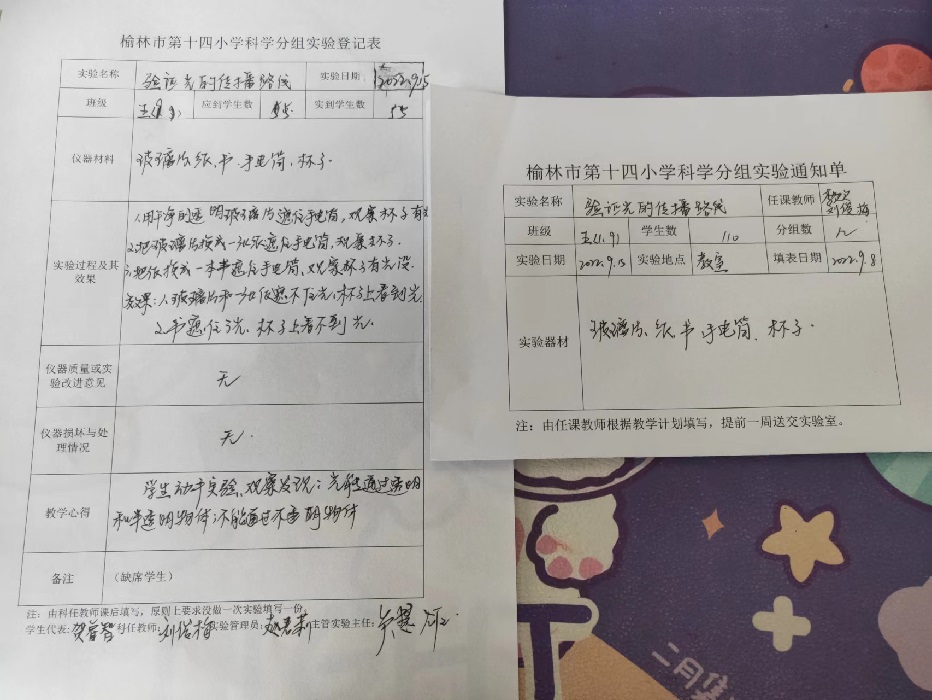 榆林市第十四小学科学分组实验登记表
实验名称 验证光的传播路线 实验日期 2022.9.15
班级 五(1.9) 应到学生数 55 实到学生数 55
仪器材料 玻璃片、纸、书、手电筒、杯子.
实验过程及其效果
1.用干净的透明玻璃片遮住手电筒,观察杯子有
2.把玻璃片换成一张纸遮住手电筒,观察杯子.
3.把纸换成一本书遮住手电筒,观察杯子有光没.
效果:1.玻璃片和一张纸遮不住光,杯子上看到光
2.书遮住了光.杯子上看不到光.
仪器质量或实验改进意见 无
仪器损坏与处理情况 无.
教学心得
学生动手实验、观察发现:光能通过透明
和半透明物体;不能通过不透明物体
备注 (缺席学生)
注:由科任教师课后填写,原则上要求没做一次实验填写一份。
学生代表: 科任教师:刘 实验管理员: 主管实验主任:
榆林市第十四小学科学分组实验通知单
实验名称 验证光的传播路线 任课教师
班级 五(1.9) 学生数 110 分组数
实验日期 2022.9.15 实验地点 教室 填表日期 2022.9.8
实验器材 玻璃片、纸、书、手电筒、杯子.
注:由任课教师根据教学计划填写,提前一周送交实验室。
二月